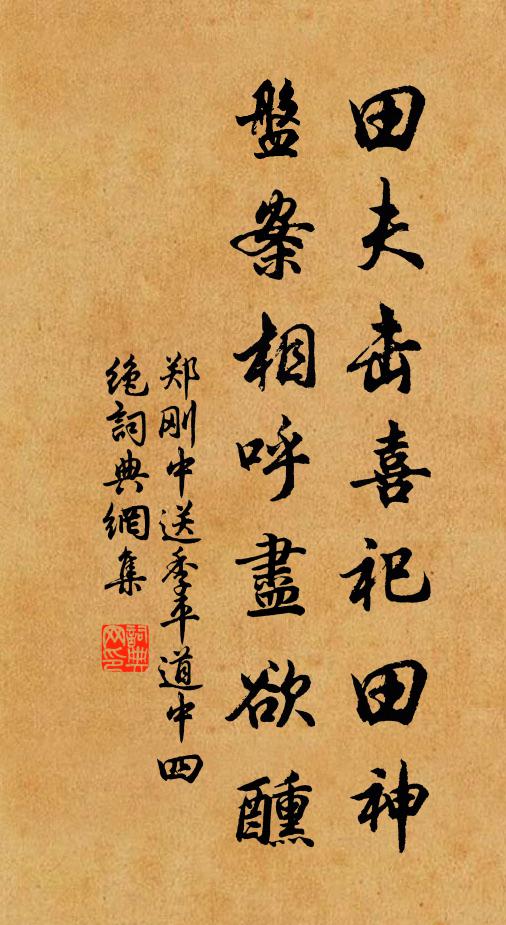 田夫击喜祀田神
盤案相呼盡欲醺
郑刚中送季平道中四
绝詞典網集
詞典
网印